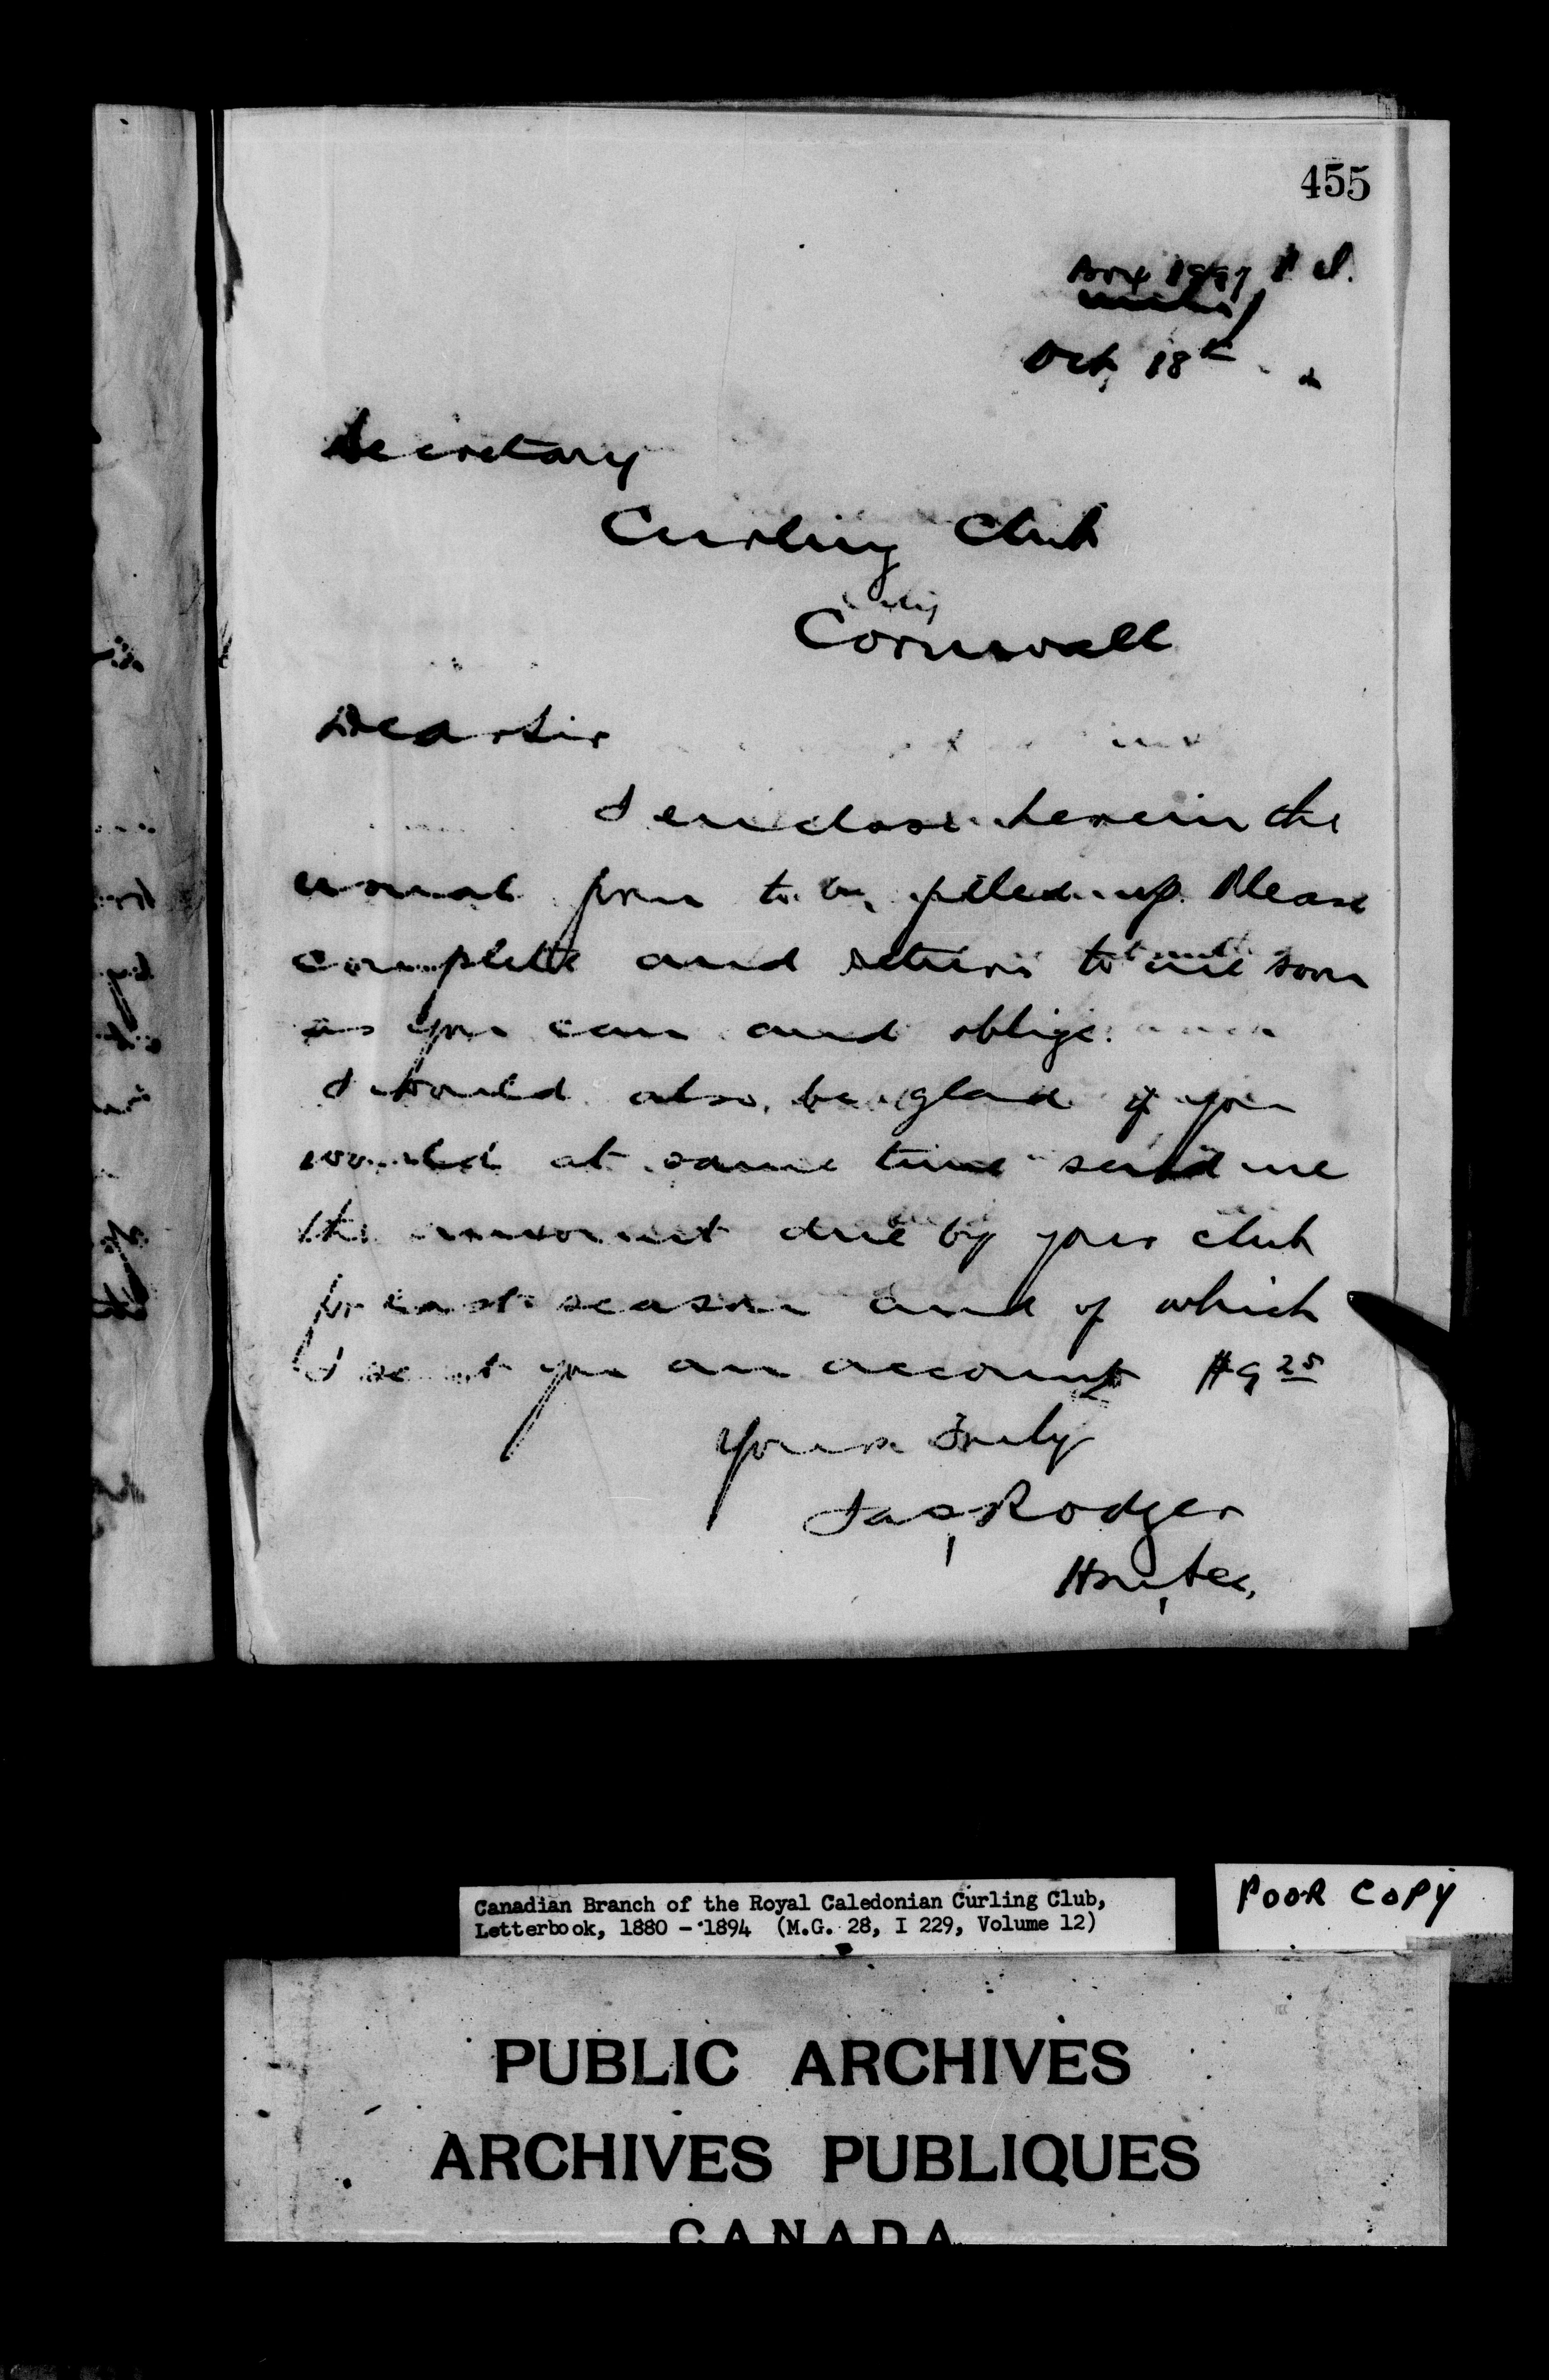 455
Box
Oct, 18th
Secretary
Curling Club
Cornwall
Dear Sir
I enclose herein the
usual form to be filled up. Please
complete and return to me soon
as you can and oblige.
I would also be glad if you
would at same time send me
the amount due by your club
for last season and of which
I sent you an account $9 25
Yours Truly
Jas, Rodger
Hon, Sec,
Canadian Branch of the Royal Caledonian Curling Club,
Letterbook, 1880 - 1894 (M.G. 28, I 229, Volume 12)
POOR COPY
PUBLIC ARCHIVES
ARCHIVES PUBLIQUES
CANADA